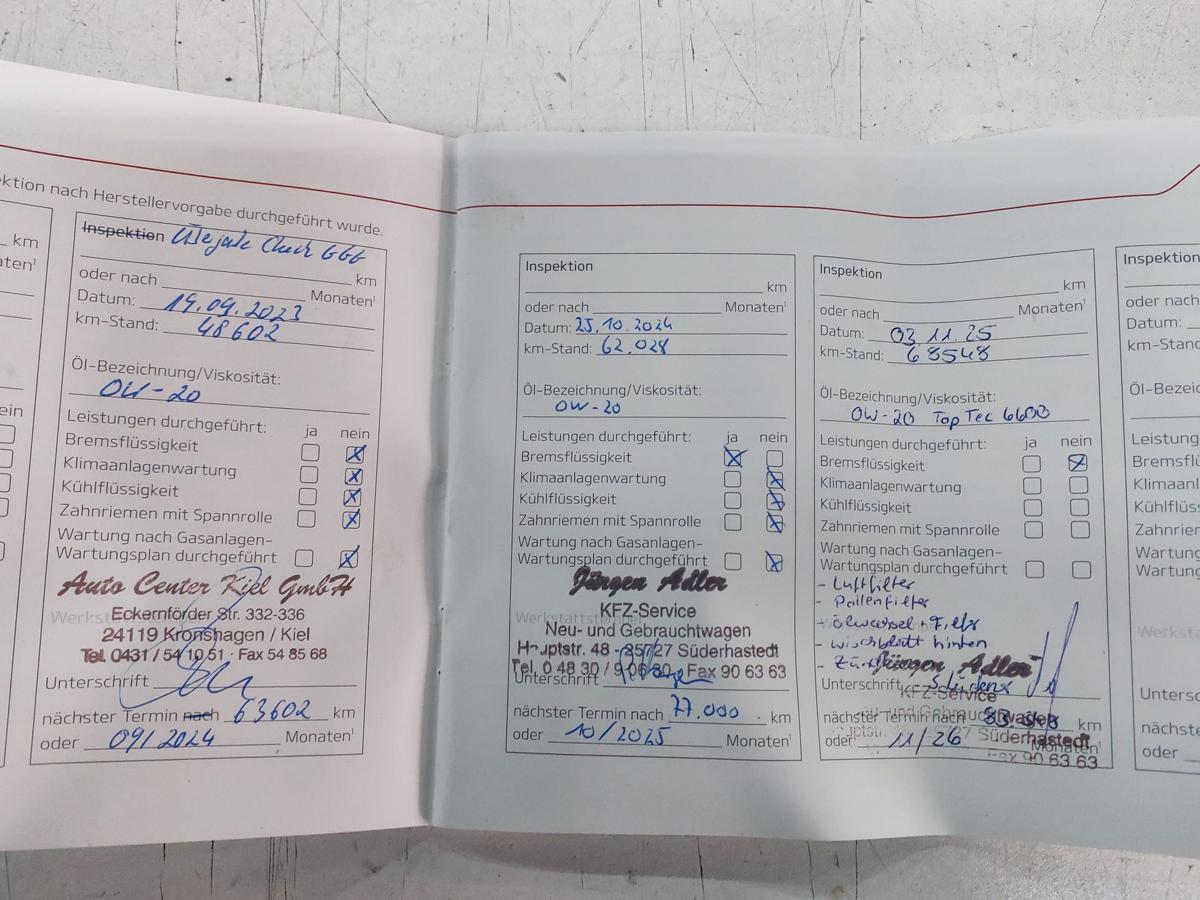 ktion nach Herstellervorgabe durchgeführt wurde.
km
aten¹
ein
Inspektion Check
km
oder nach Monaten¹
Datum: 19.09.2023
km-Stand: 48602
Öl-Bezeichnung/Viskosität:
OW-20
Leistungen durchgeführt: ja nein
Bremsflüssigkeit
Klimaanlagenwartung
Kühlflüssigkeit
Zahnriemen mit Spannrolle
Wartung nach Gasanlagen-
Wartungsplan durchgeführt
Auto Center Kiel GmbH
Eckernförder Str. 332-336
Werkstattstempel
24119 Kronshagen / Kiel
Tel. 0431 / 54 10 51 · Fax 54 85 68
Unterschrift
nächster Termin nach 63602 km
oder 09/2024 Monaten¹
Inspektion
km
oder nach Monaten¹
Datum: 25.10.2024
km-Stand: 62.028
Öl-Bezeichnung/Viskosität:
OW-20
Leistungen durchgeführt: ja nein
Bremsflüssigkeit
Klimaanlagenwartung
Kühlflüssigkeit
Zahnriemen mit Spannrolle
Wartung nach Gasanlagen-
Wartungsplan durchgeführt
Jürgen Adler
KFZ-Service
Werkstattstempel
Neu- und Gebrauchtwagen
Hauptstr. 48 - 25727 Süderhastedt
Tel. 0 48 30 / 9 06 30 · Fax 90 63 63
Unterschrift
nächster Termin nach 77.000 km
oder 10/2025 Monaten¹
Inspektion
km
oder nach Monaten¹
Datum: 03.11.25
km-Stand: 68548
Öl-Bezeichnung/Viskosität:
OW-20 Top Tec 6600
Leistungen durchgeführt: ja nein
Bremsflüssigkeit
Klimaanlagenwartung
Kühlflüssigkeit
Zahnriemen mit Spannrolle
Wartung nach Gasanlagen-
Wartungsplan durchgeführt
- Luftfilter
- Pollenfilter
- ölwechsel + Filter
- wischblatt hinten
Jürgen Adler
Unterschrift
KFZ-Service
nächster Termin nach km
Süderhastedt
oder 11/26 Monaten¹
Fax 90 63 63
Inspektion
oder nach
Datum:
km-Stand:
Öl-Bezeic
Leistung
Bremsflü
Klimaanl
Kühlflüss
Zahnriem
Wartung
Wartung
Werksta
Untersc
nächste
oder